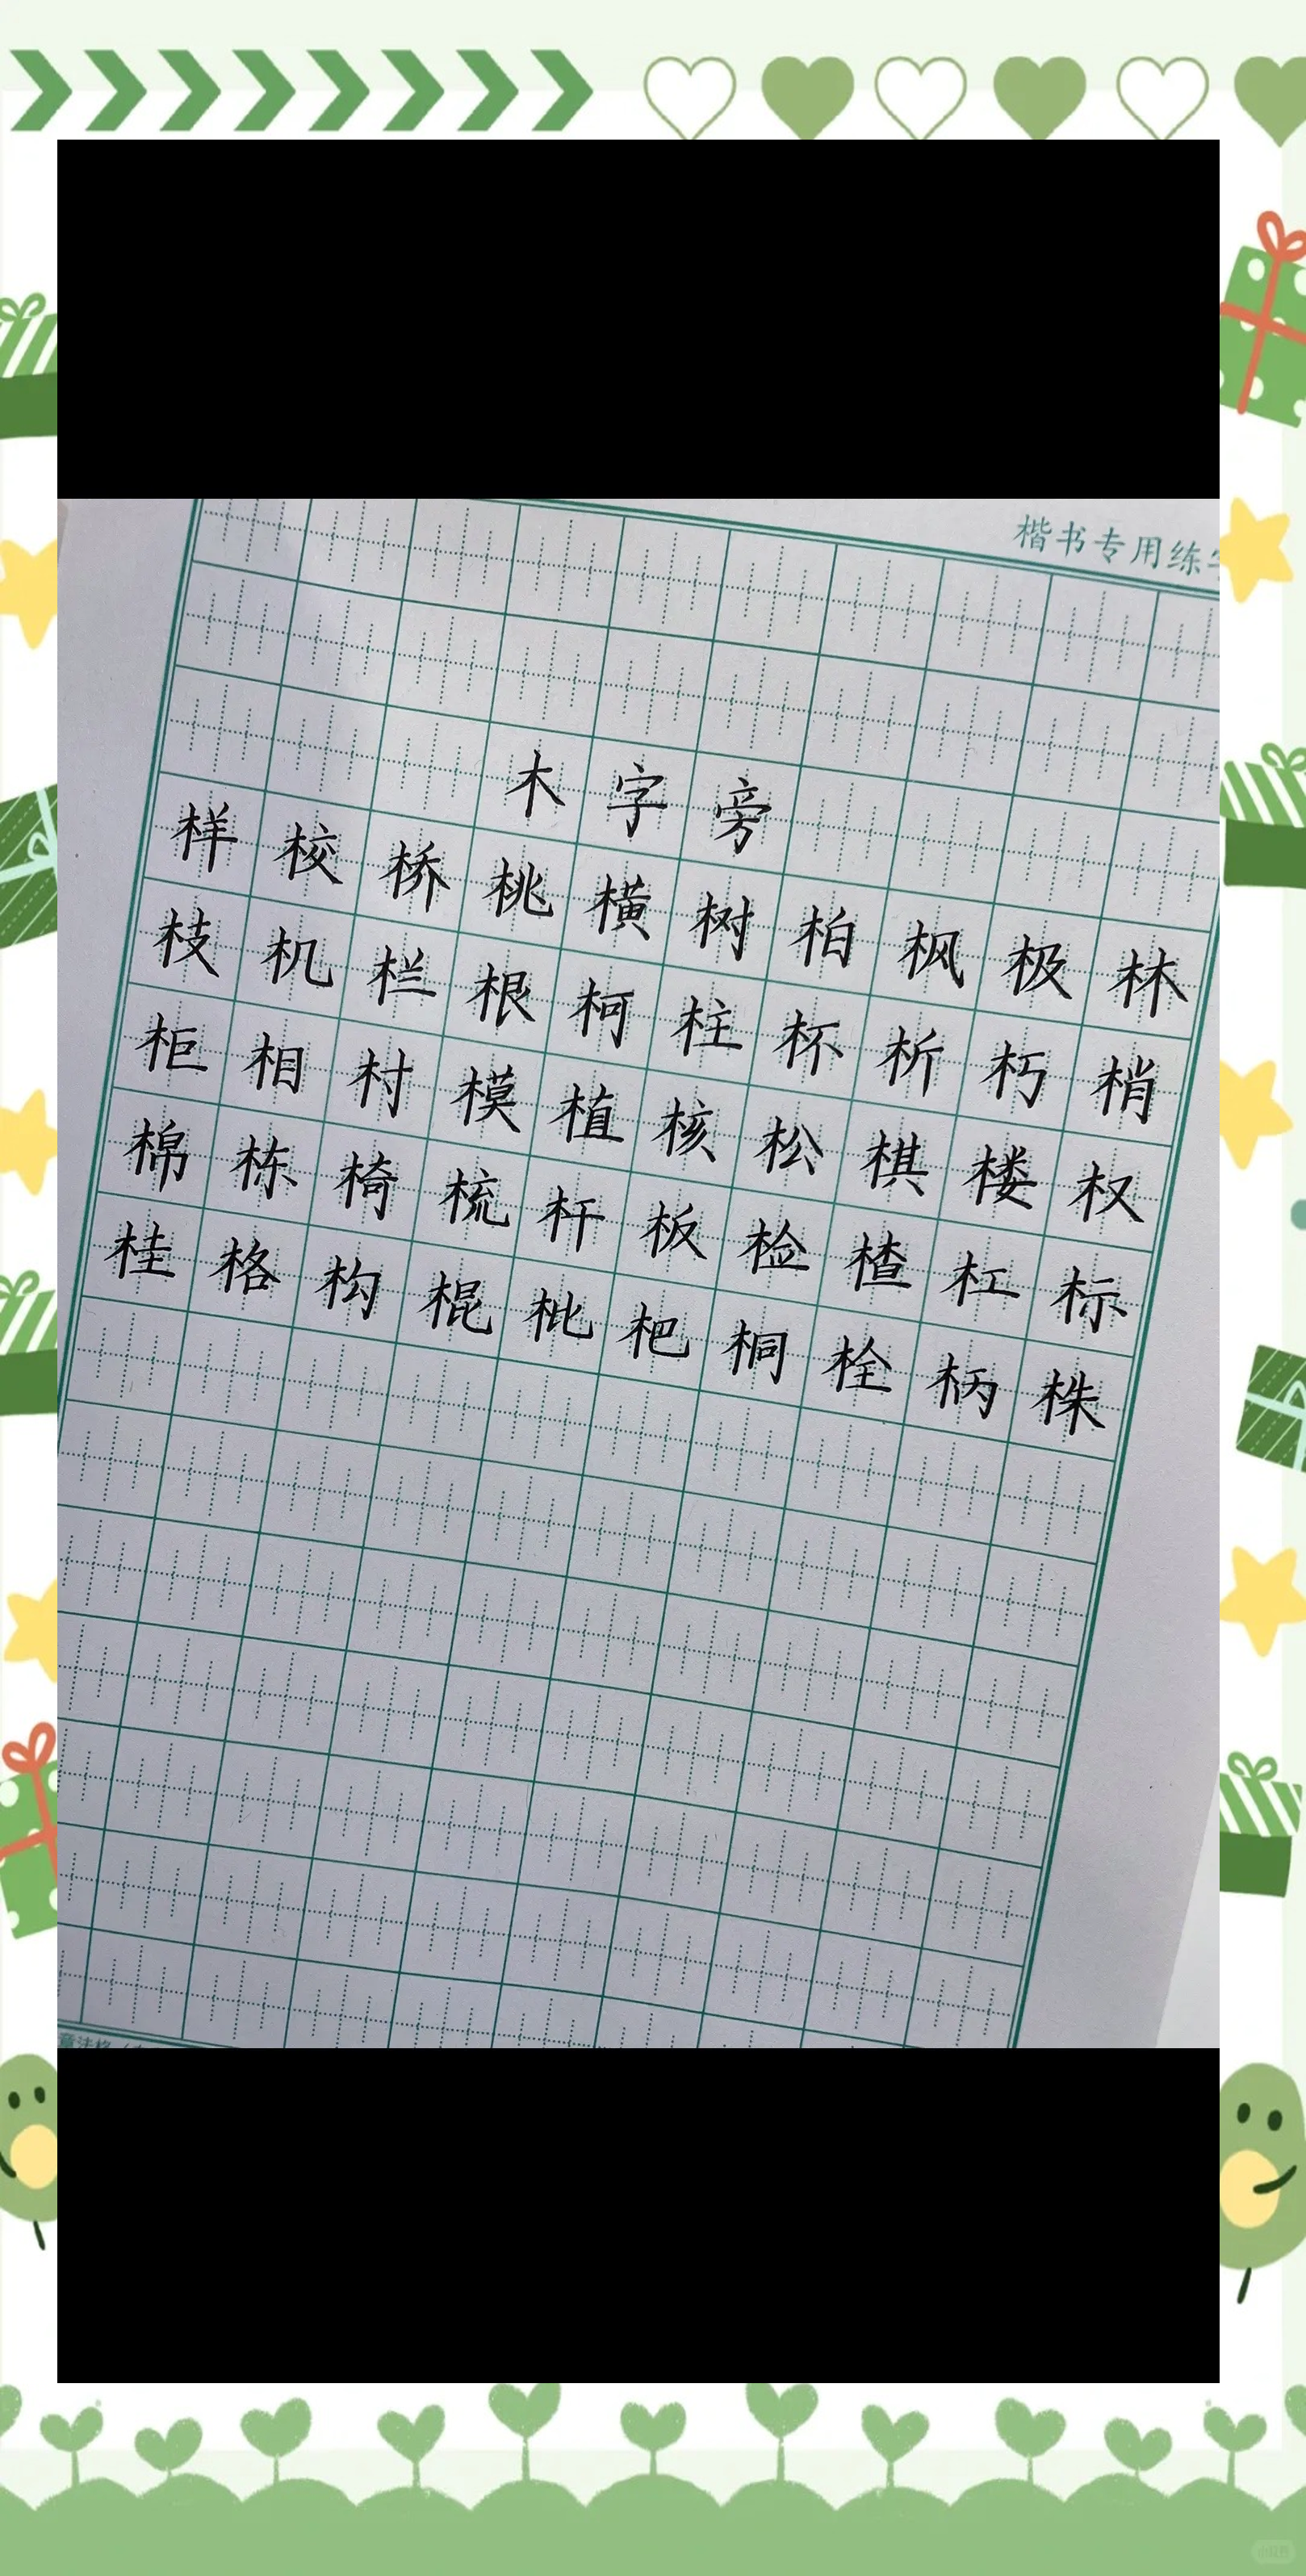 楷书专用练
木字旁
样校桥桃横树柏枫极林
枝机栏根柯柱杯析朽梢
柜相村模植核松棋楼权
棉栋椅梳杆板检楂杠标
桂格构棍枇杷桐栓柄株
章法格